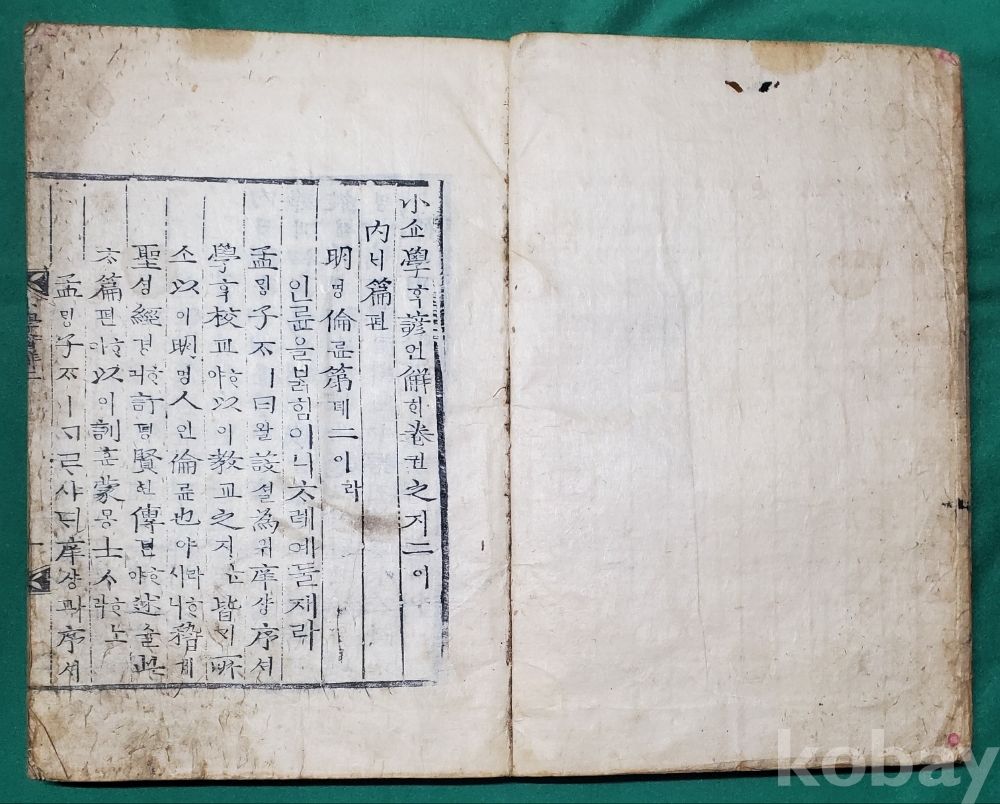 小쇼學ᄒᆞᆨ諺언解ᄒᆡ卷권之지二이
內ᄂᆡ篇편
明명倫륜第뎨二이라
인륜을ᄇᆞᆰ힘이니ᄎᆞ례예둘재라
孟ᄆᆡᆼ子ᄌᆞㅣ曰왈設셜爲위庠샹序셔
學ᄒᆞᆨ校교ᄒᆞ야以이敎교之지ᄂᆞᆫ皆ᄀᆡ所
소以이明명人인倫륜也야ㅣ라ᄒᆞ시니稽계
聖셩經경ᄒᆞ며訂평賢현傳뎐ᄒᆞ야述슐此
ᄎᆞ篇편ᄒᆞ야以이訓훈蒙몽士ᄉᆞᄒᆞ노라
孟ᄆᆡᆼ子ᄌᆞㅣᄀᆞᆯᄋᆞ샤ᄃᆡ庠샹과序셔
kobay